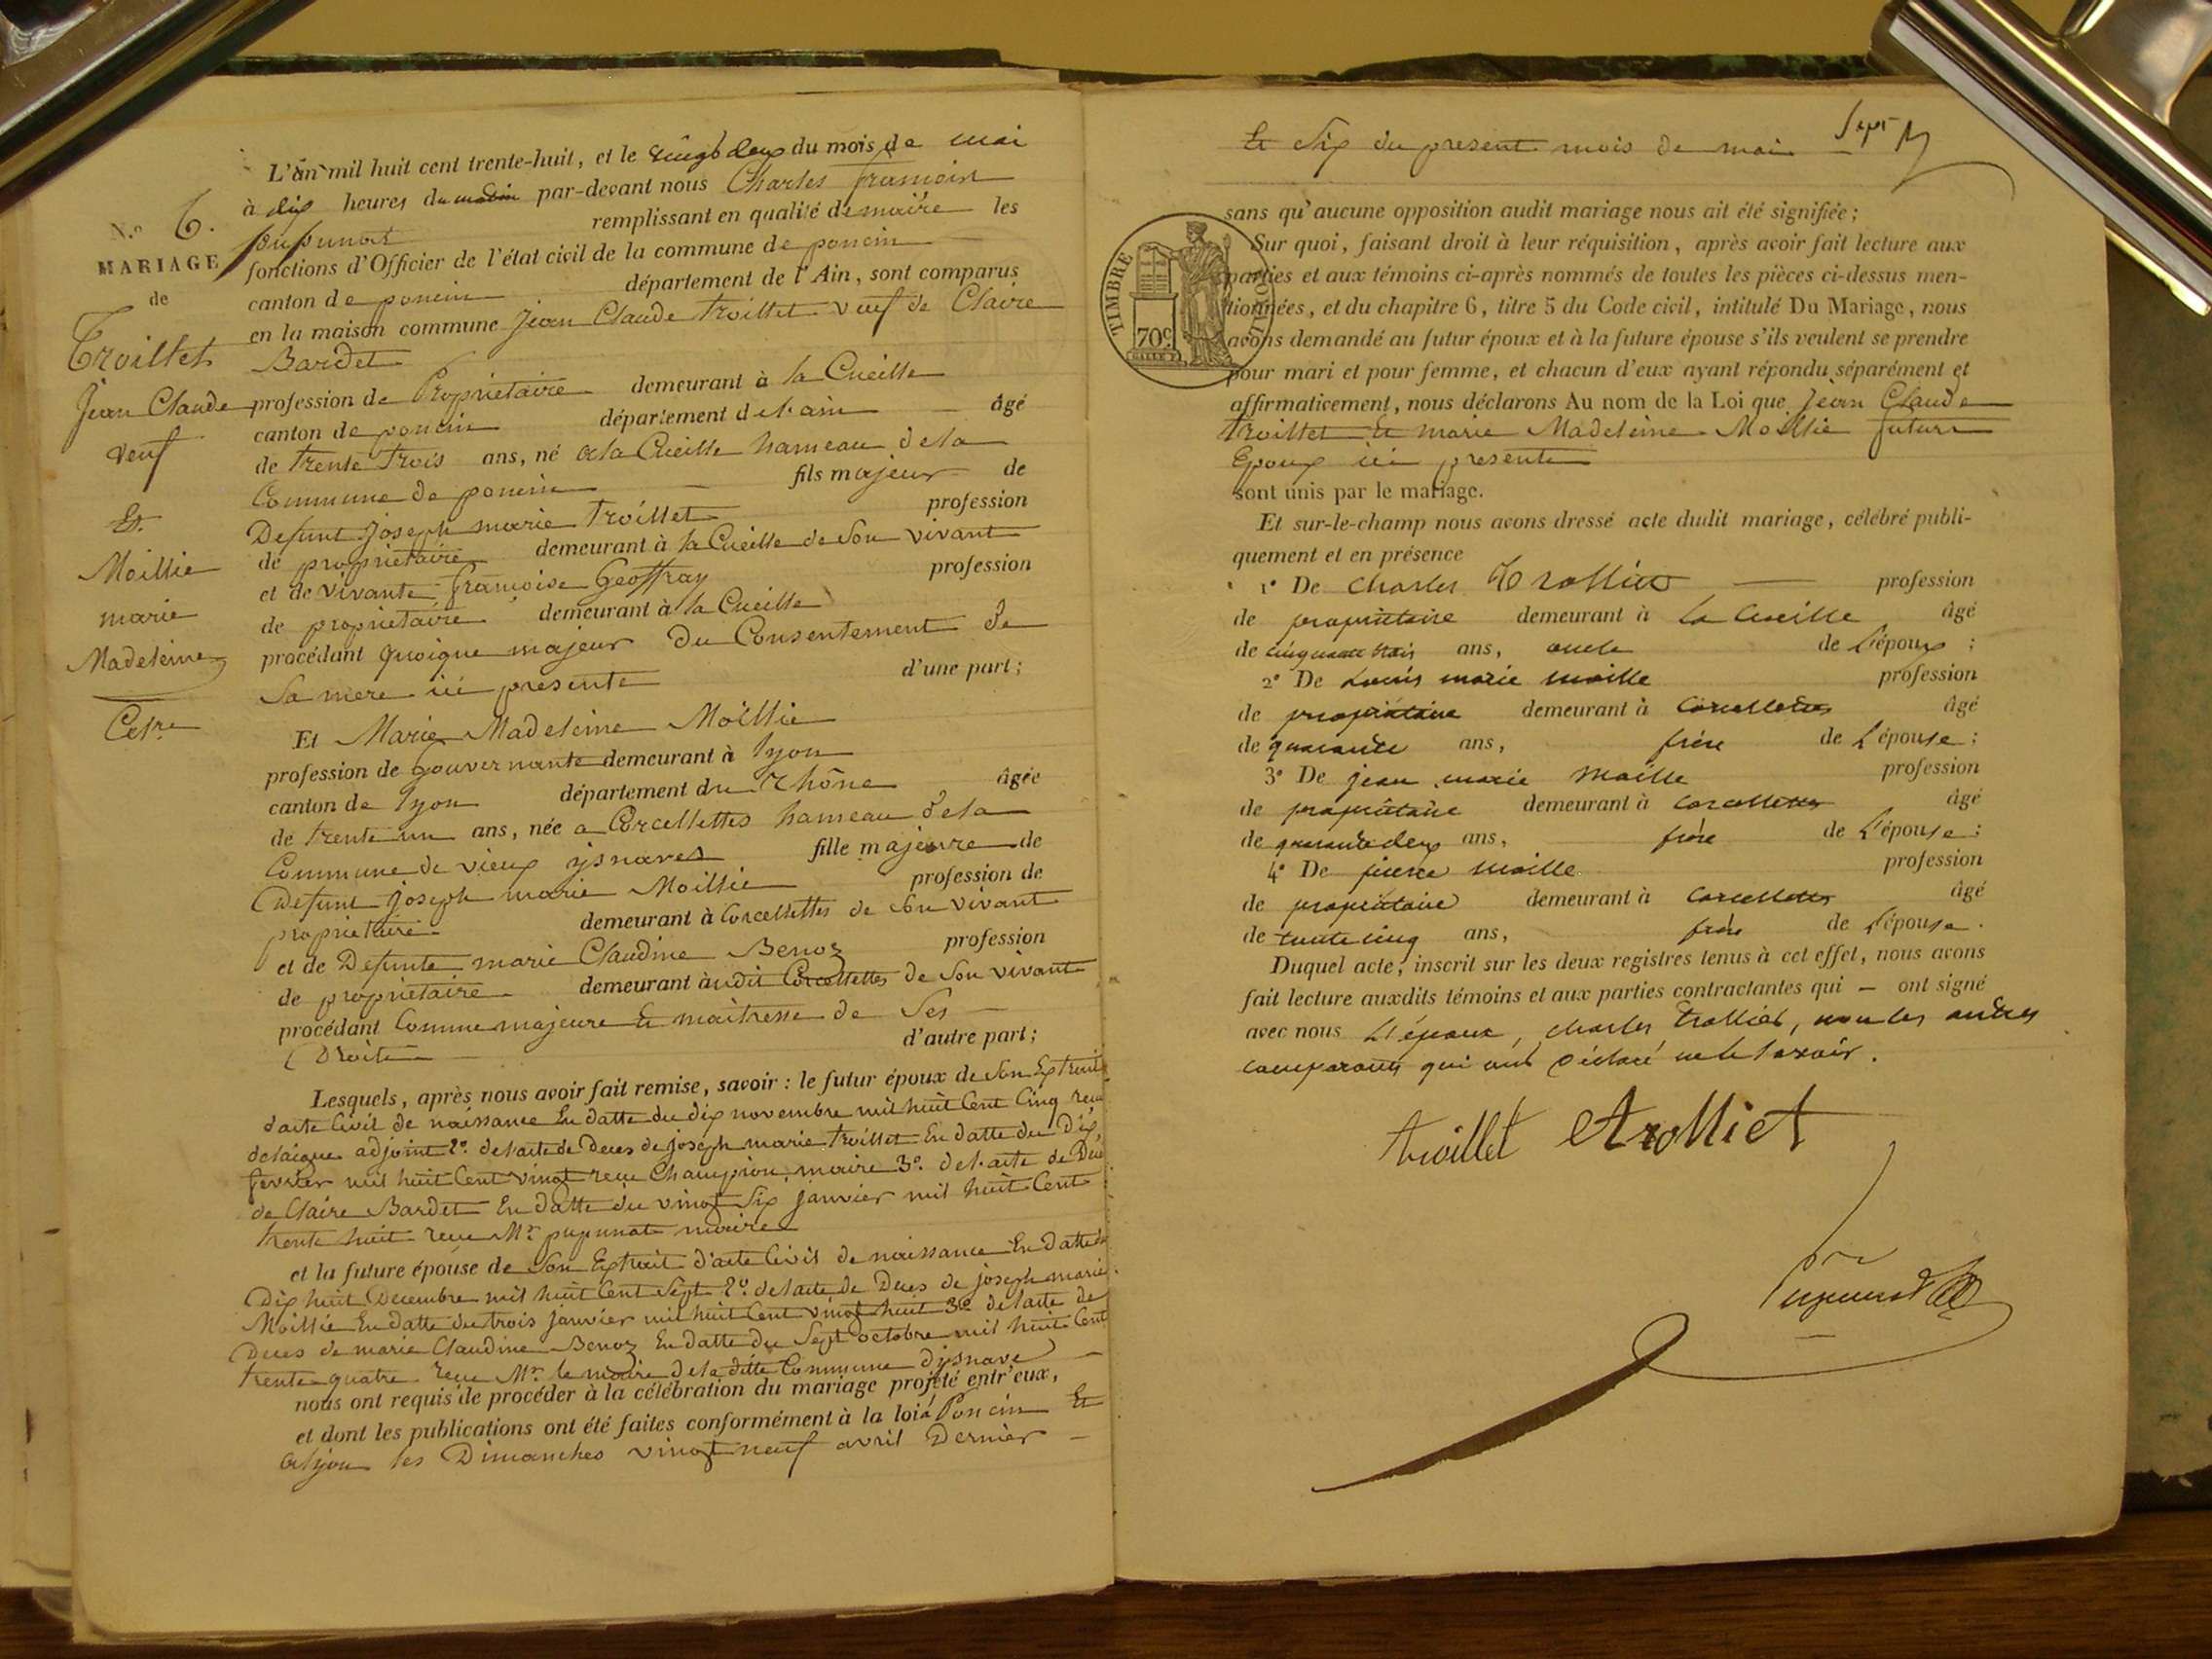 N.º 6.
MARIAGE
de
Troillet
Jean Claude
veuf
Et
Moillie
marie
Madeleine
L'an mil huit cent trente-huit, et le vingt deux du mois de mai
à dix heures du matin par-devant nous Charles francois
pupunat remplissant en qualité de maire les
fonctions d'Officier de l'état civil de la commune de poncin
canton de poncin département de l'Ain, sont comparus
en la maison commune Jean Claude Troillet veuf de Claire
Bardet
profession de Propriétaire demeurant à la Cueille
canton de poncin département de l'ain âgé
de trente trois ans, né a la Cueille hameau de la
Commune de poncin fils majeur de
Defunt Joseph marie Troillet profession
de propriétaire demeurant à la Cueille de Son vivant
et de vivante françoise Geoffray profession
de propriétaire demeurant à la Cueille
procédant quoique majeur du Consentement de
Sa mere ici presente d'une part;
Et Marie Madeleine Moillie
profession de gouvernante demeurant à lyon
canton de lyon département du Rhône âgée
de trente un ans, née a Corcellettes hameau de la
Commune de vieux ysnaves fille majeure de
Defunt joseph marie Moillie profession de
propriétaire demeurant à Corcellettes de Son vivant
et de Defunte marie Claudine Benoz profession
de propriétaire demeurant àudit Corcellettes de Son vivant
procédant Comme majeure Et maitresse de Ses
Droits d'autre part;
Lesquels, après nous avoir fait remise, savoir : le futur époux de Son Extrait
d'acte Civil de naissance En datte du dix novembre mil huit Cent Cinq recu
delaigue adjoint 2º. de l'acte de Deces de joseph marie Troillet En datte du Dix
fevrier mil huit Cent vingt recu Champion maire 3º. de l'acte de
de Claire Bardet En datte du vingt Six janvier mil huit Cent
trente huit recu Mr. pupunat maire
et la future épouse de Son Extrait d'acte Civil de naissance En datte du
Dix huit Decembre mil huit Cent Sept 2º. de l'acte de Deces de joseph marie
Moillie En datte du trois janvier mil huit Cent vingt huit 3º de l'acte de
Deces de marie Claudine Benoz En datte du Sept octobre mil huit Cent
trente quatre recu Mr. le maire de la ditte Commune d'ysnave
nous ont requis de procéder à la célébration du mariage projeté entr'eux,
et dont les publications ont été faites conformément à la loi à Poncin Et
a lyon les Dimanches vingt neuf avril Dernier
Et Six du present mois de mai
TIMBRE
70c
sans qu'aucune opposition audit mariage nous ait été signifiée;
Sur quoi, faisant droit à leur réquisition, après avoir fait lecture aux
parties et aux témoins ci-après nommés de toutes les pièces ci-dessus men-
tionnées, et du chapitre 6, titre 5 du Code civil, intitulé Du Mariage, nous
avons demandé au futur époux et à la future épouse s'ils veulent se prendre
pour mari et pour femme, et chacun d'eux ayant répondu séparément et
affirmativement, nous déclarons Au nom de la Loi que Jean Claude
Troillet Et marie Madeleine Moillie futurs
Epoux ici presents
sont unis par le mariage.
Et sur-le-champ nous avons dressé acte dudit mariage, célébré publi-
quement et en présence
1º De charles Trolliet profession
de propriétaire demeurant à La Cueille âgé
de cinquante trois ans, oncle de L'époux ;
2º De Louis marie moille profession
de propriétaire demeurant à Corcellettes âgé
de quarante ans, frère de L'épouse ;
3º De jean marie moille profession
de propriétaire demeurant à Corcellettes âgé
de quarante deux ans, frère de L'épouse ;
4º De pierre moille profession
de propriétaire demeurant à Corcellettes âgé
de trente cinq ans, frère de L'épouse .
Duquel acte, inscrit sur les deux registres tenus à cet effet, nous avons
fait lecture auxdits témoins et aux parties contractantes qui – ont signé
avec nous L'époux, charles trolliet, non les autres
comparants qui ont déclaré ne le savoir.
troillet Ctrolliet
Pupunat